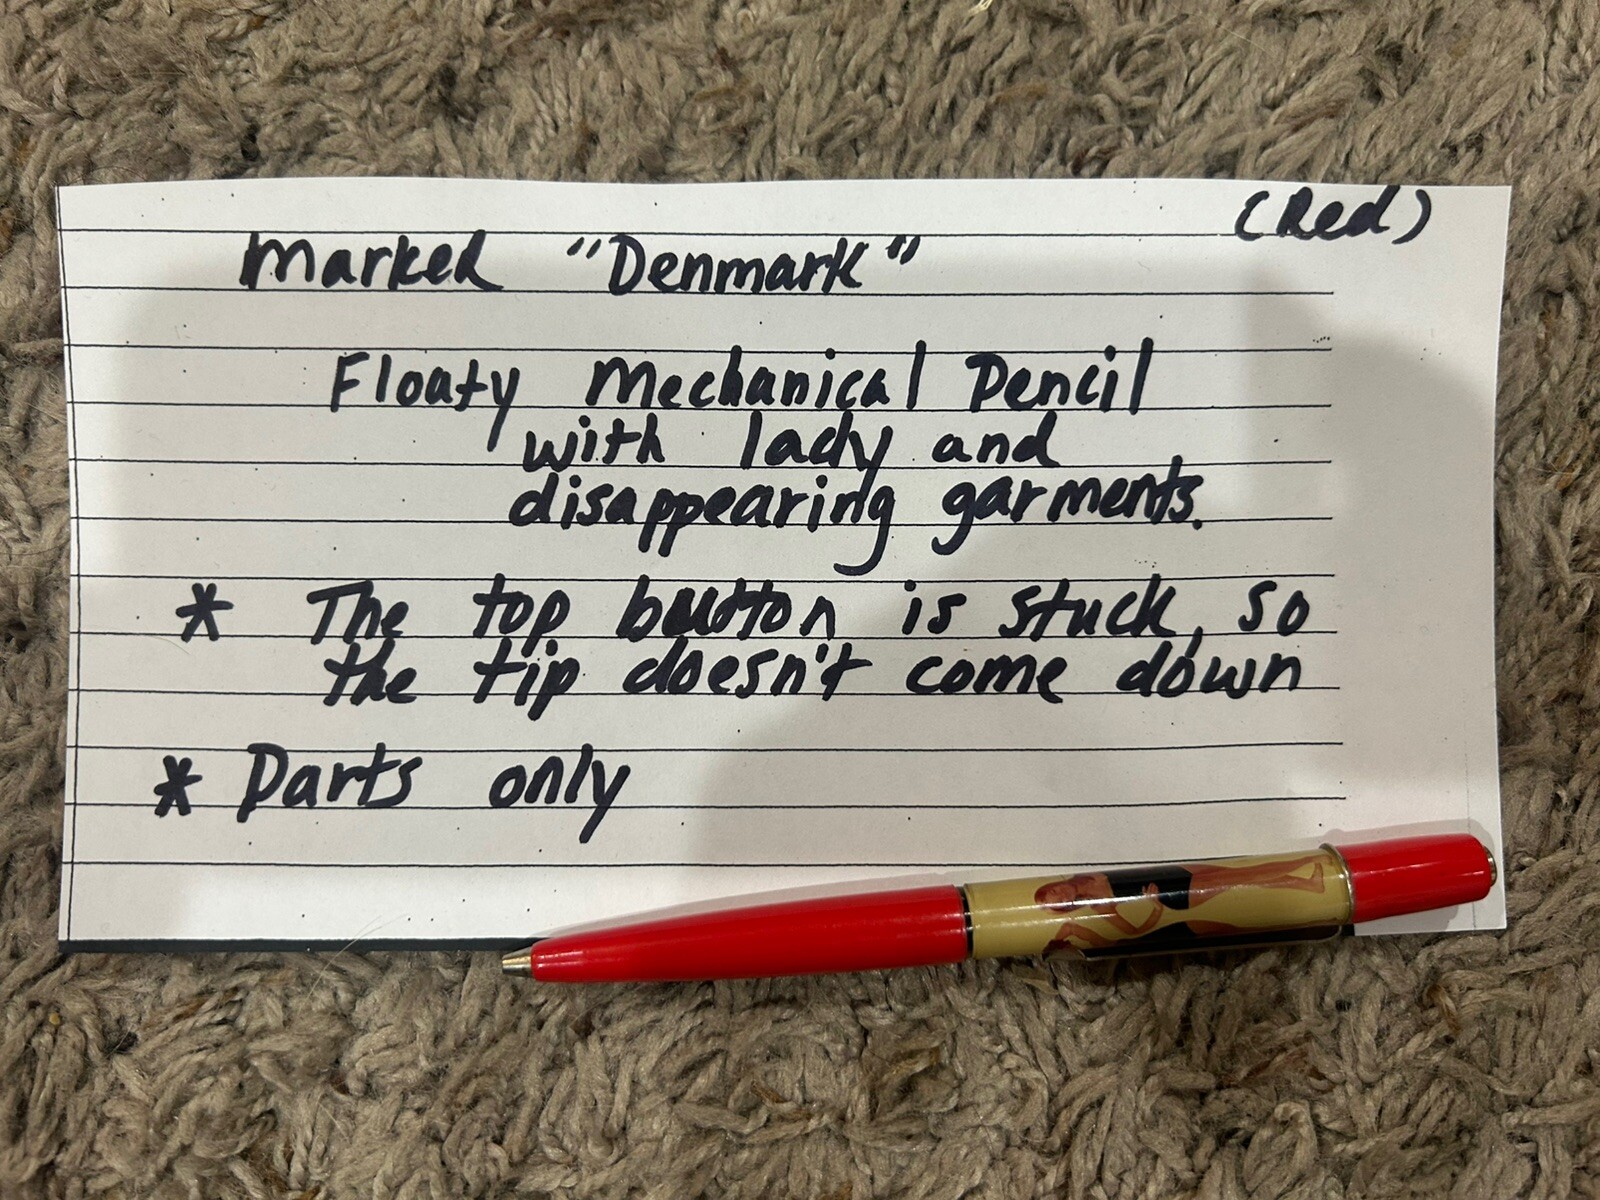 (Red)
Marked "Denmark"
Floaty Mechanical Pencil
with lady and
disappearing garments.
* The top button is stuck, so
the tip doesn't come down
* Parts only